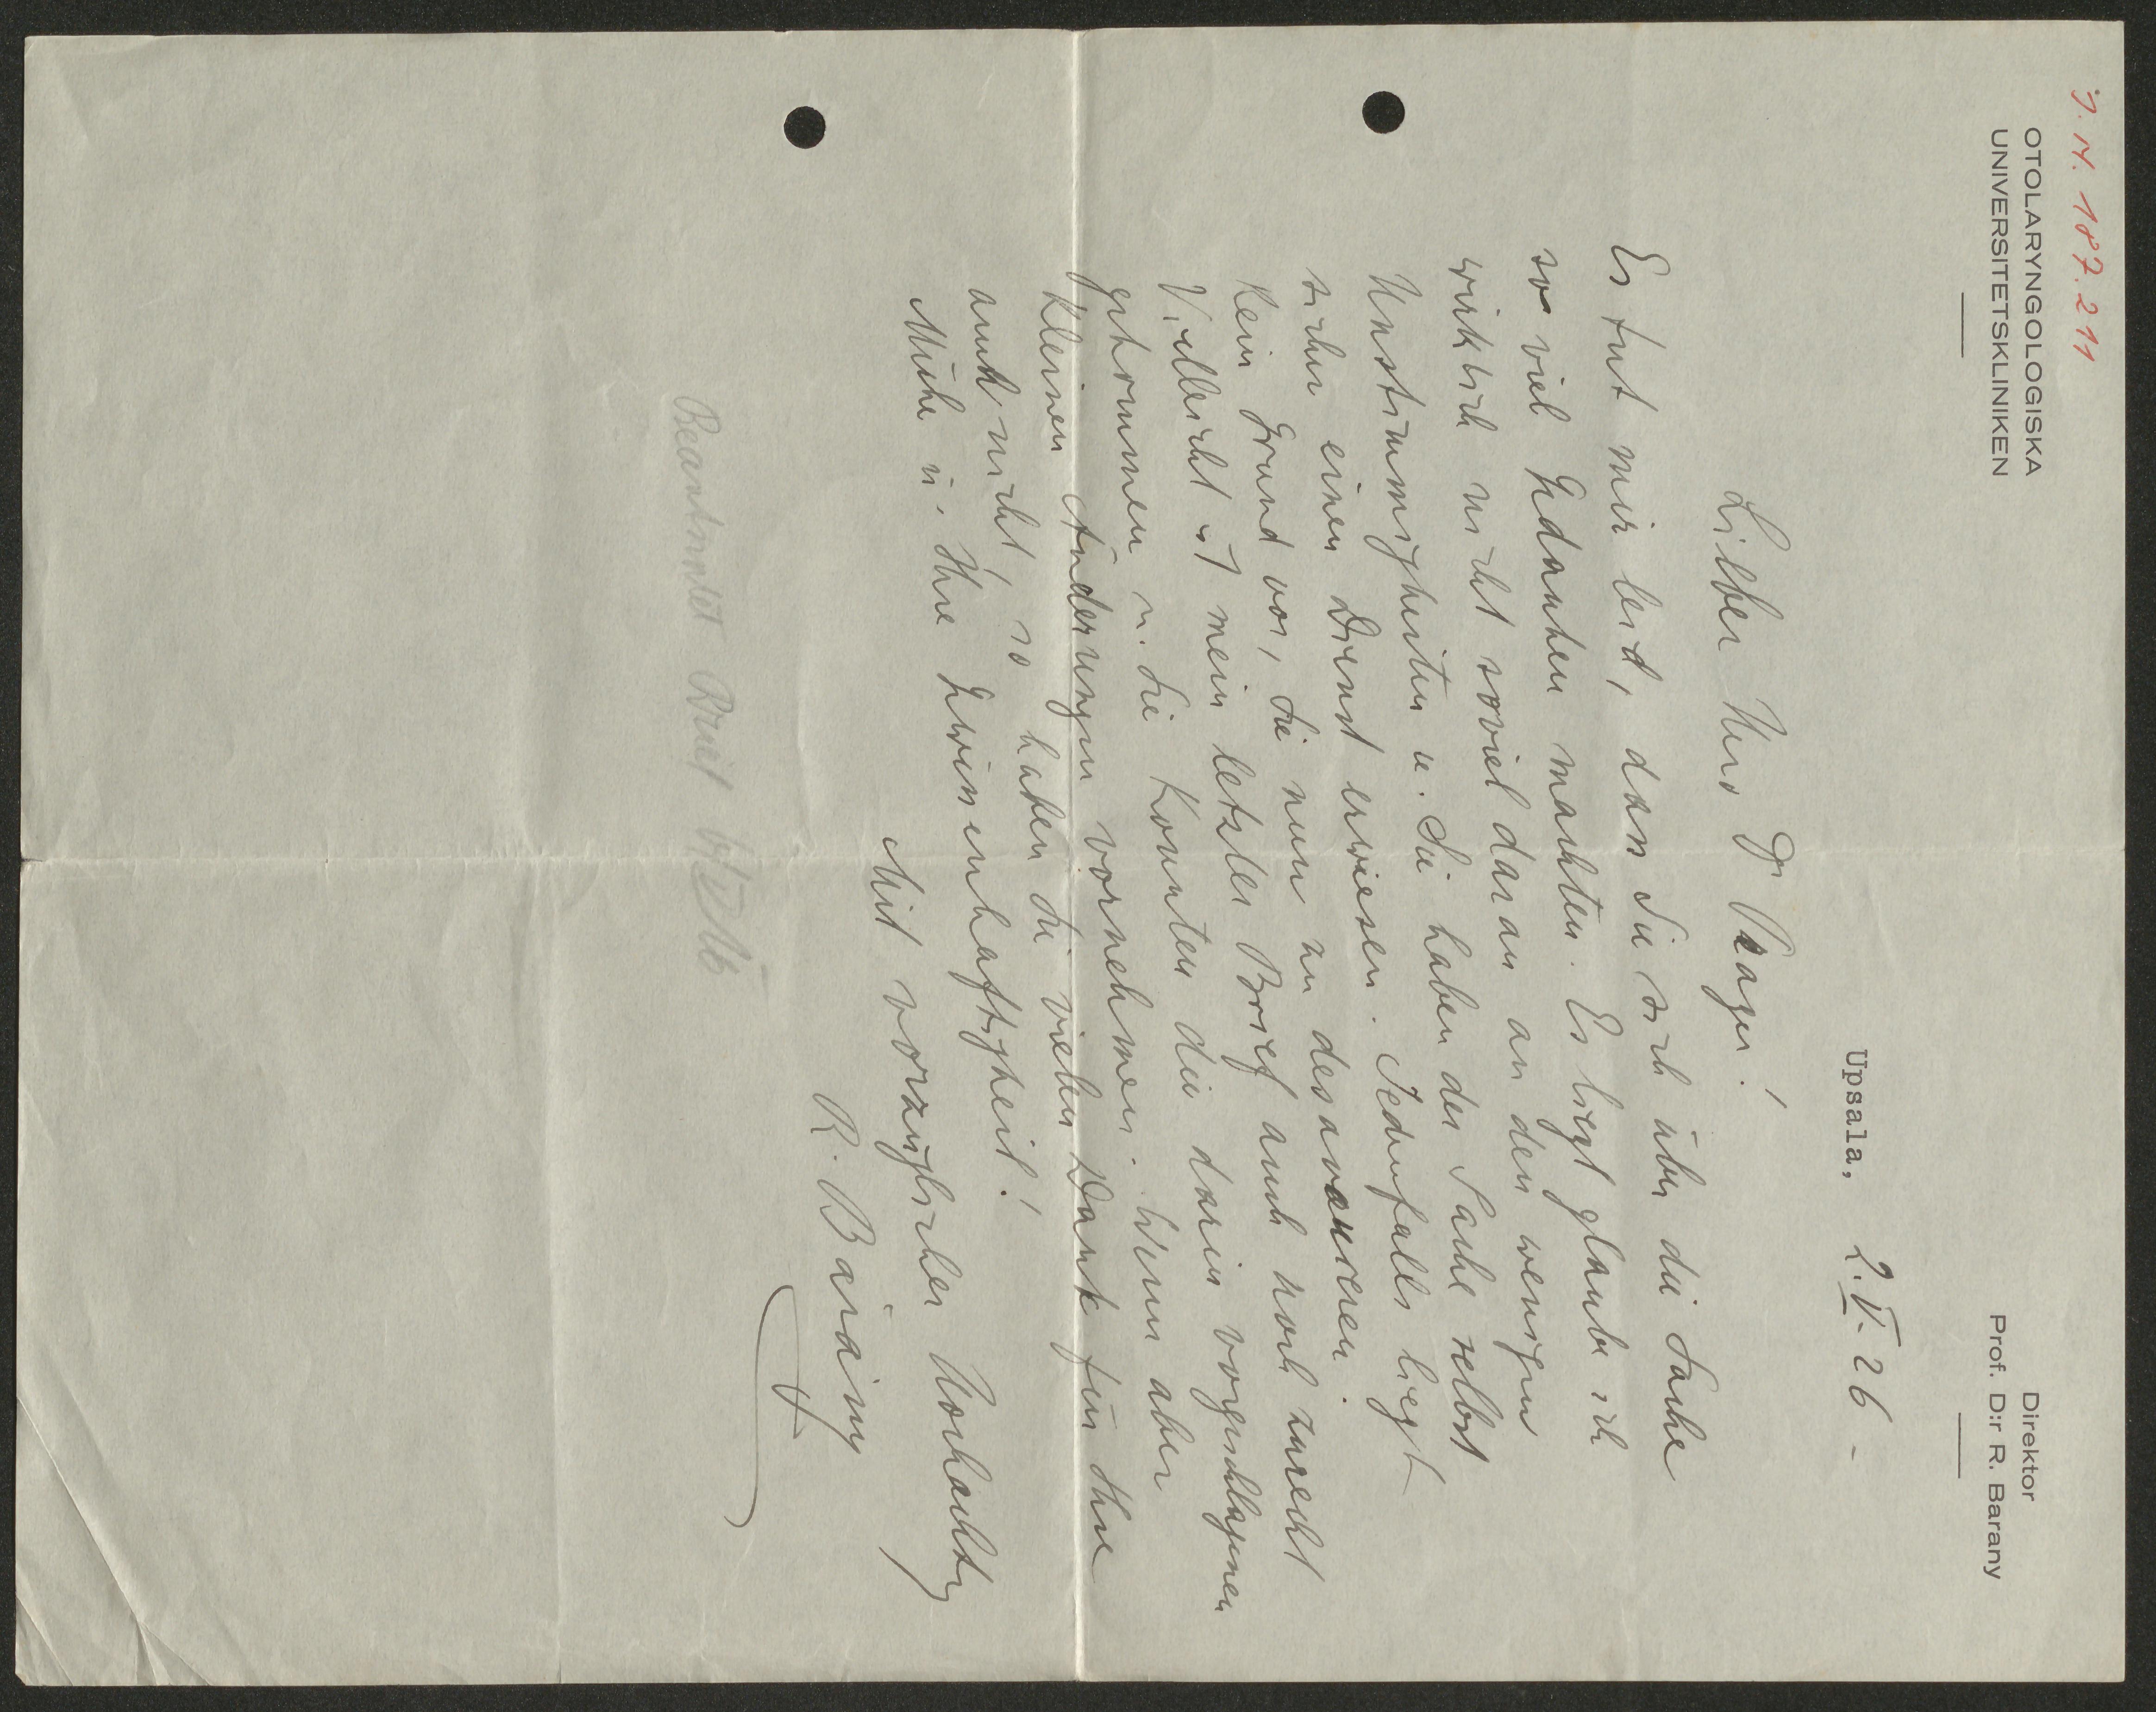 J. N. 187.211
OTOLARYNGOLOGISKA
UNIVERSITETSKLINIKEN
Direktor
Prof. D:r R. Barany
Upsala, 2.V.26
Lieber Herr Dr
Es tut mir leid, dass Sie sich über die Sache
so viel Gedanken machten. Es liegt glaube ich
wirklich nicht soviel daran an den wenigen
Unstimmigkeiten u. Sie haben der Sache selbst
sicher einen Dienst erwiesen. Jedenfalls liegt
kein Grund vor, Sie nun zu desavouieren.
Vielleicht ist mein letzter Brief auch noch zurecht
gekommen u. Sie konnten die darin vorgeschlagenen
kleinen Änderungen vornehmen. Wenn aber
auch nicht, so haben Sie vielen Dank für Ihre
Mühe u. Ihre Gewissenhaftigkeit!
Mit vorzüglicher Hochachtg
R. Bárány
Beantwortet Brief